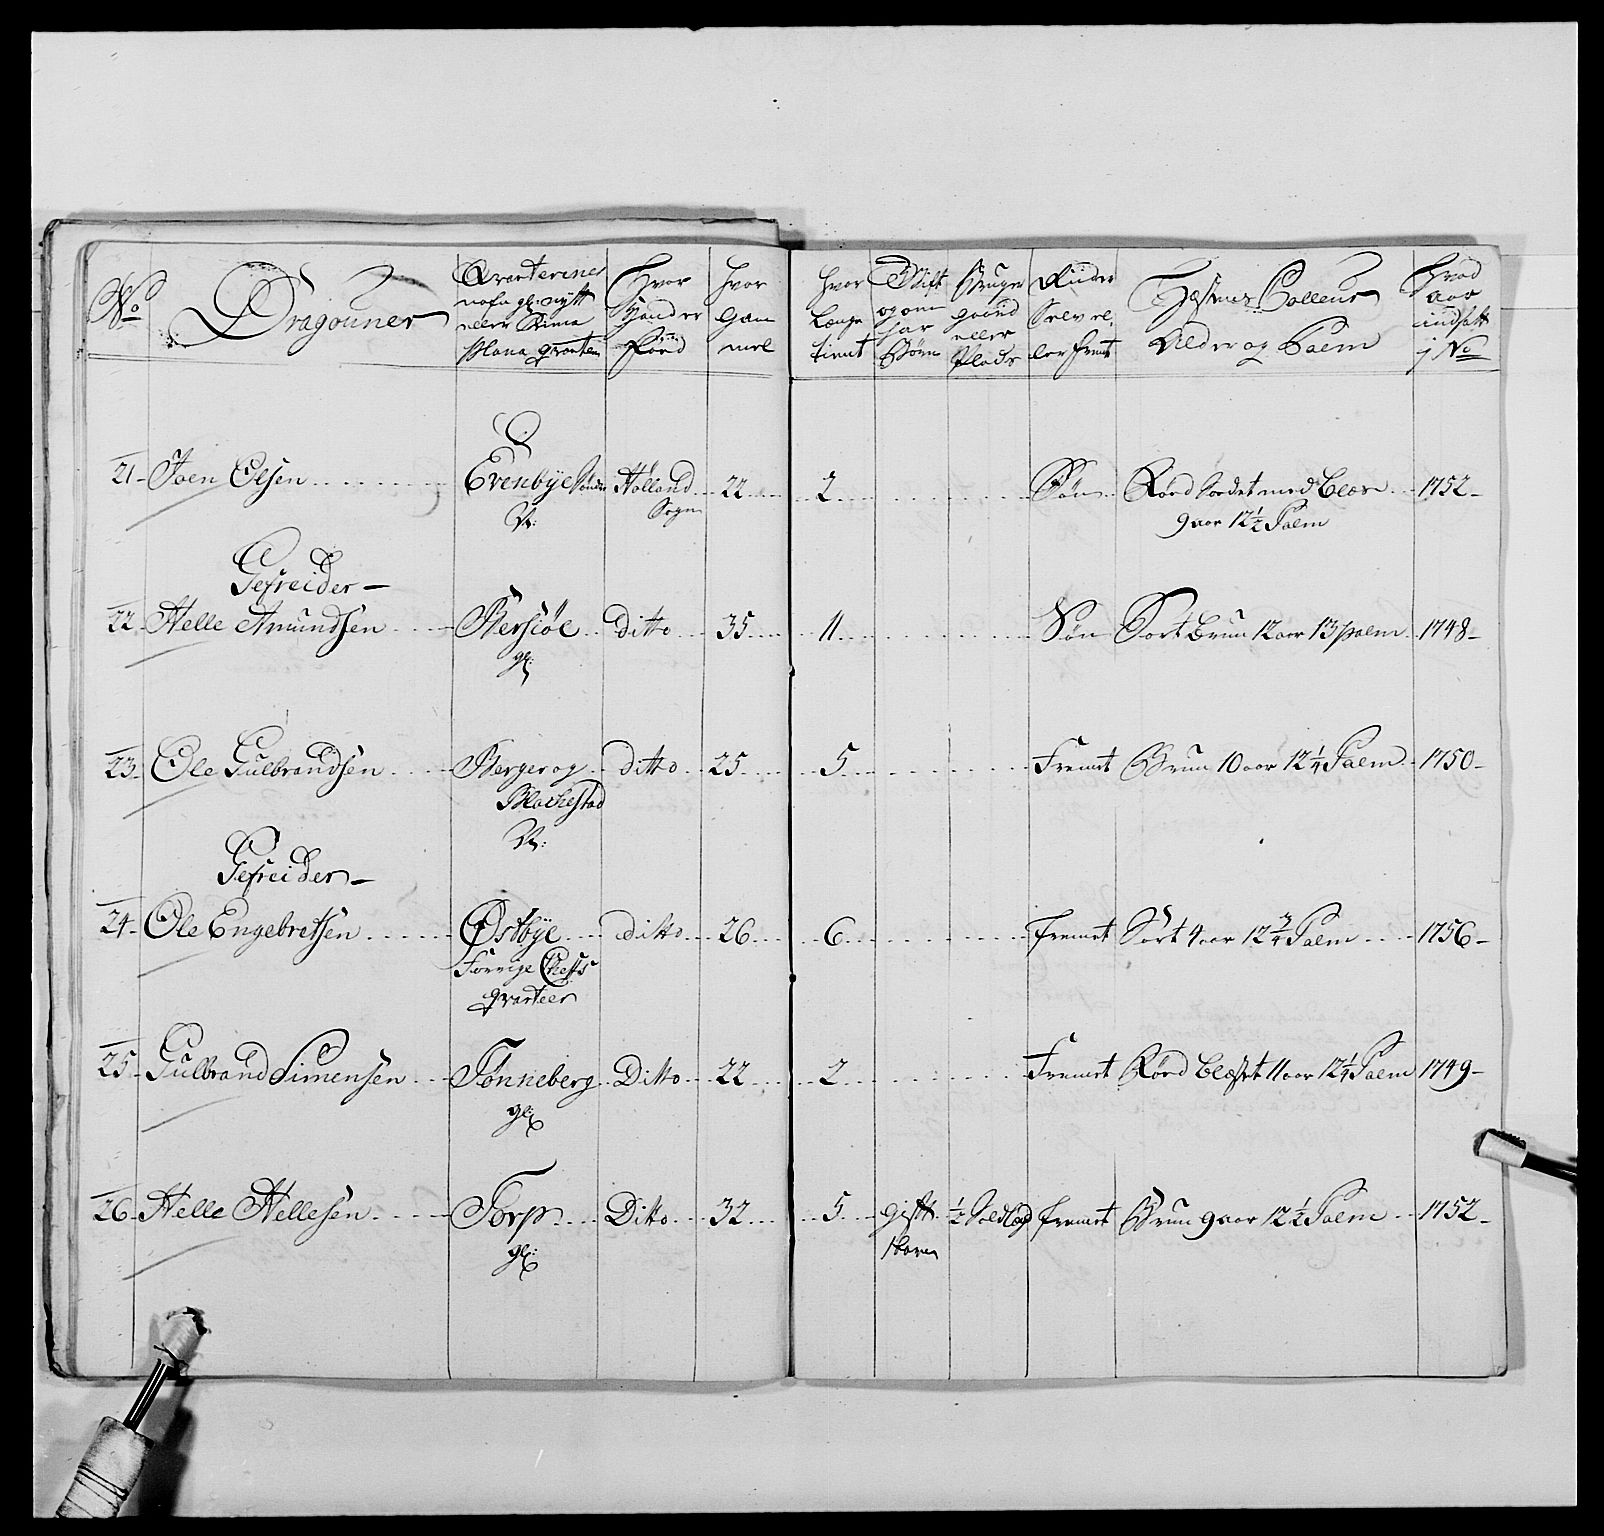 No
Dragouner
Qvarterenes
nafn gl: nytt
eller Rima
Mana qvarteer
Hvor
Hand er
Föed
Hvor
Gam
mel
Hvor
Længe
tient
Gift
og om
har
Börn
Bruger
gaard
eller
Plads
Riider
Selv el,
ler fremt
Hestenes Colleur
Alder og Palm
Hvad
aar
indsatt
i No
21. Joen Olsen
Evenbÿe Söndre
N:
Hölland
Sogn
22
2
Sön
Röed Sordet med Bles
9 aar 12½ Palm
1752
Gefreider
22. Helle Amundsen
Bersiöe
gl:
ditto
35
11
Sön
Sort brun 12 aar 13 palm
1748
23. Ole Gulbrandsen
Berger og
Blachestad
N:
ditto
25
5
Fremt
Brun 10 aar 12¼ Palm
1750
Gefreider
24. Ole Engebretsen
Østbÿe
Forrige Cheffs
qvarteer
ditto
26
6
fremt
Sort 4 aar 12¾ Palm
1756
25. Gulbrand Simensen
Tonneberg
gl:
Ditto
22
2
Fremt
Röed blesset 11 aar 12¼ Palm
1749
26. Helle Hellesen
Torp
gl:
Ditto
32
5
gift
1 baren
½ Sædlag
fremt
Brun 9 aar 12½ Palm
1752